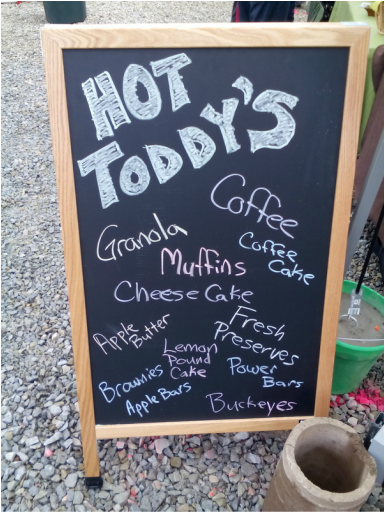 HOT
TODDY'S
Coffee
Granola
Coffee
Cake
Muffins
Cheese Cake
Apple
Butter
Fresh
Preserves
Lemon
Pound
Cake
Power
Bars
Brownies
Apple Bars
Buckeyes